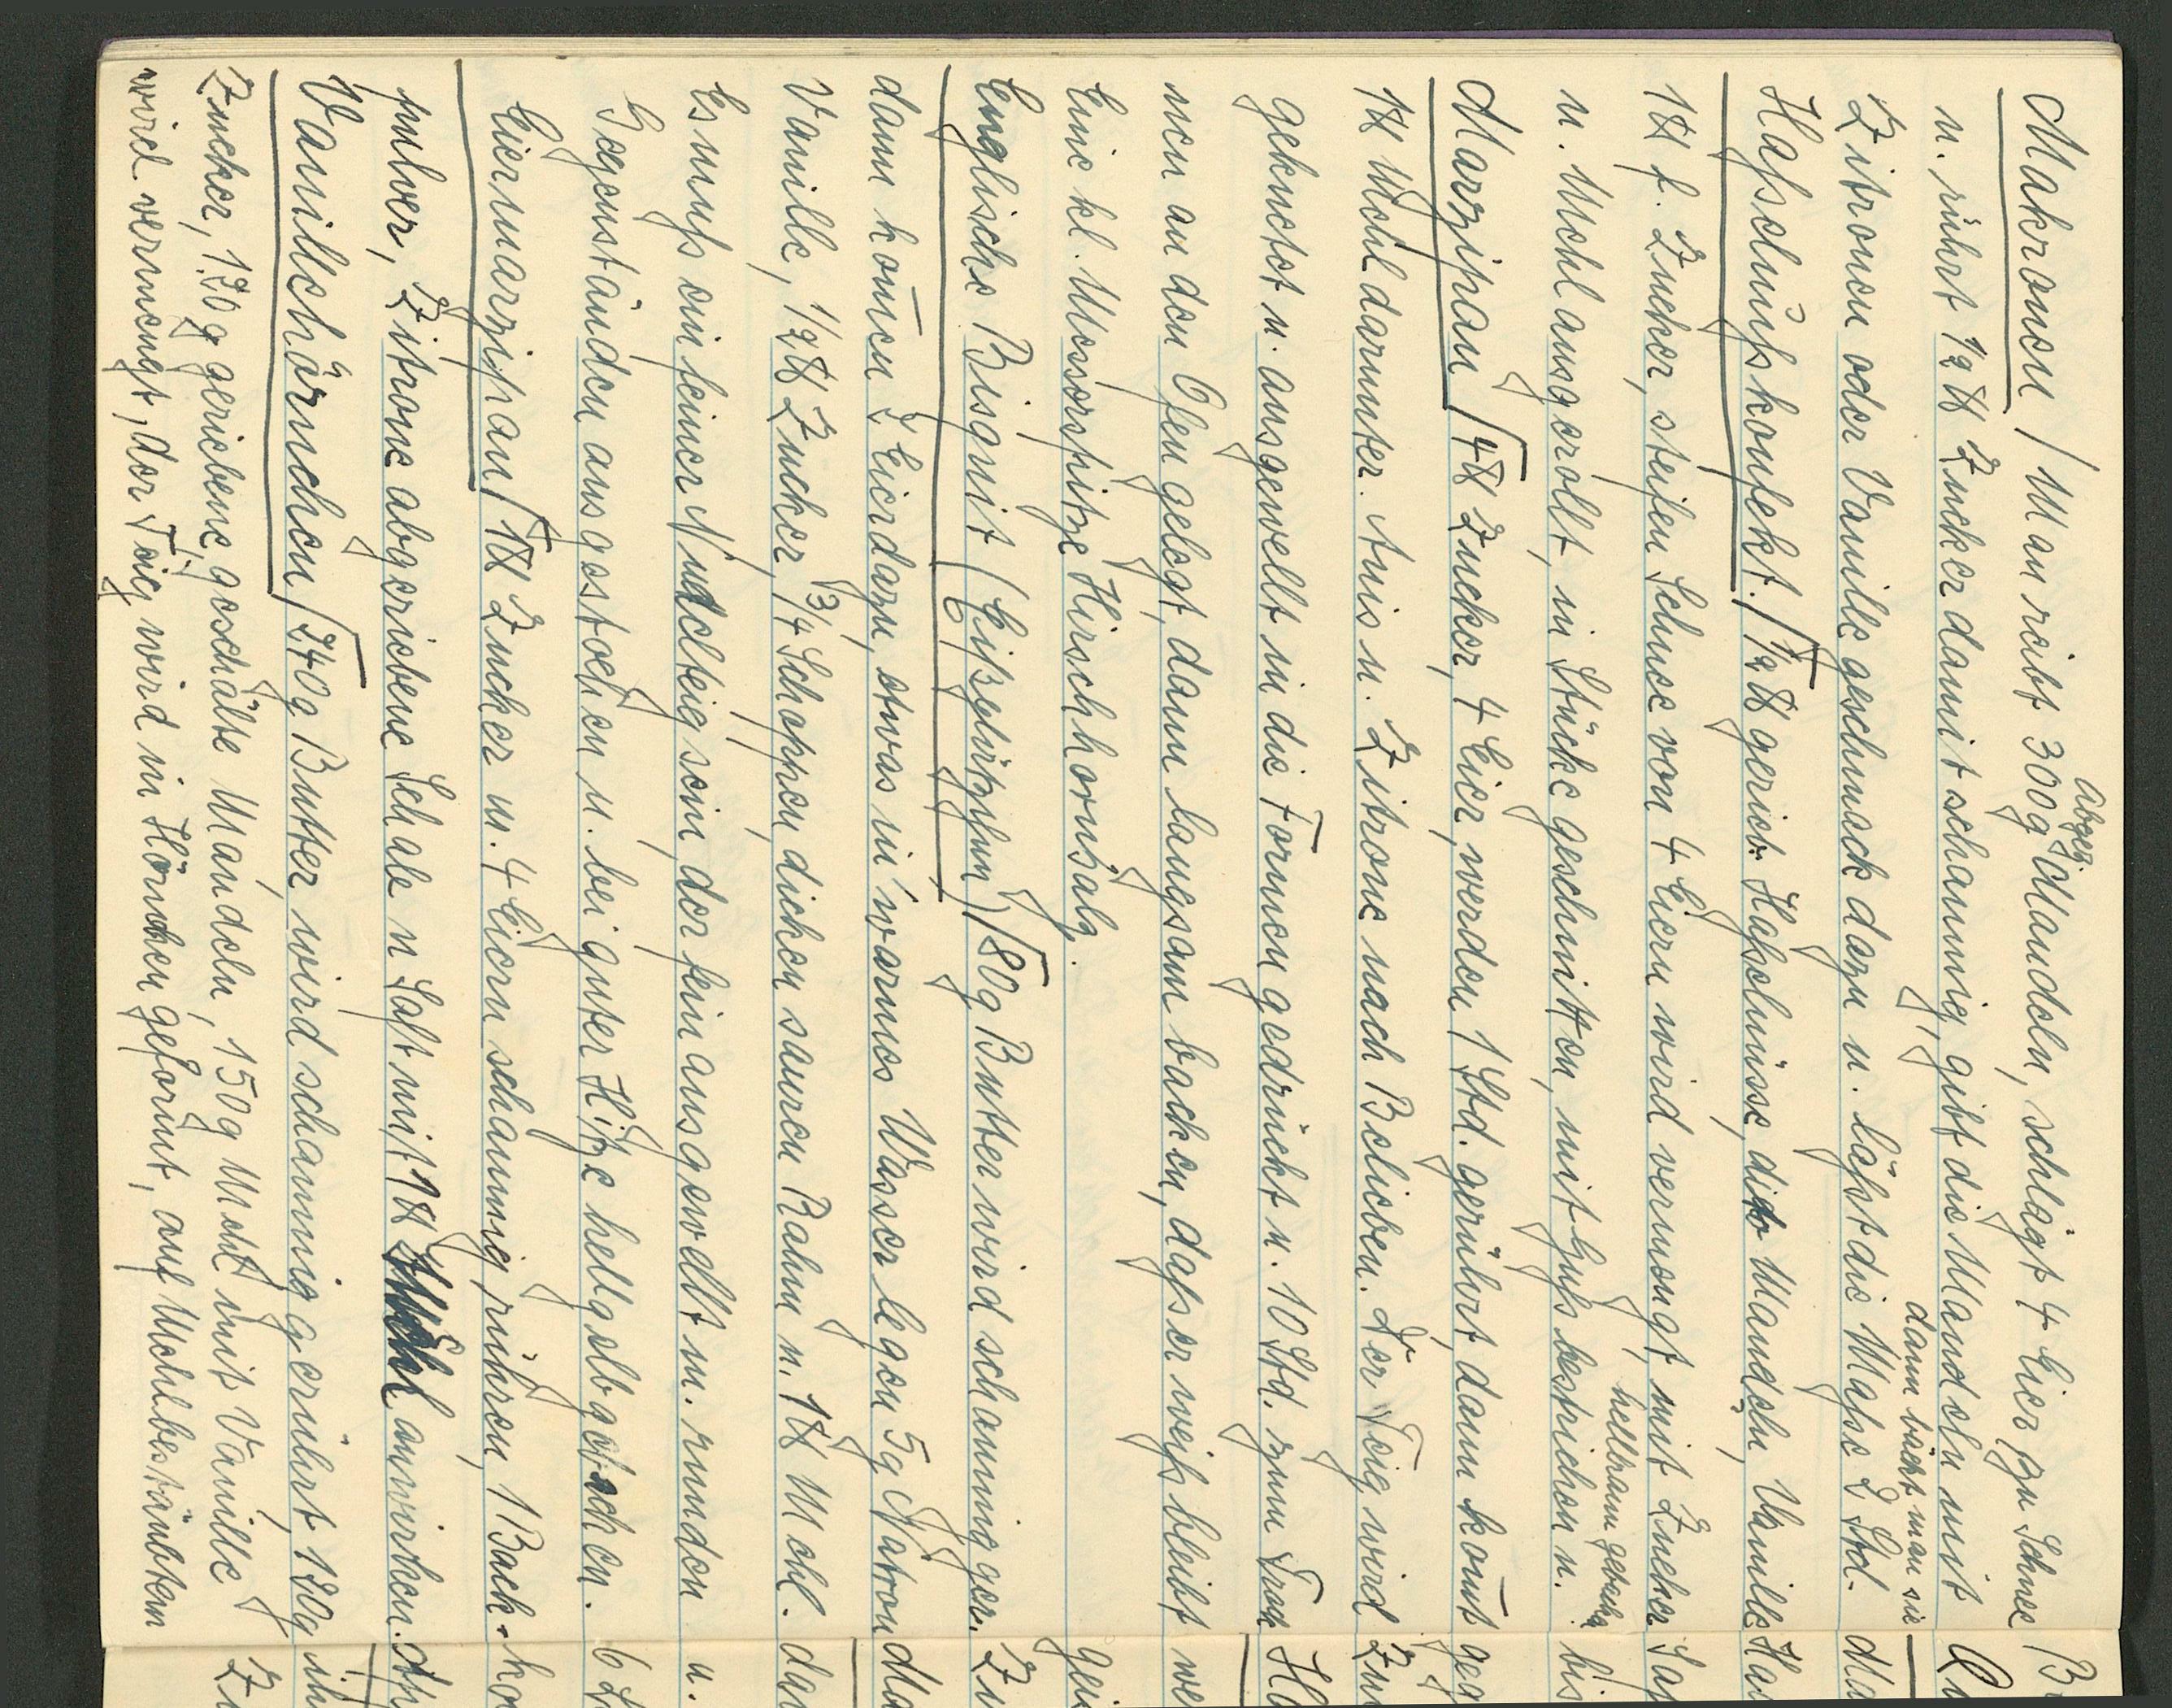 Makronen / Man reibt 300g abgez. Mandeln, schlägt 4 Eier zu Schnee
u. rührt 1/2 ℔ Zucker damit schaumig, gibt die Mandeln mit
Zitronen oder Vanille geschmack dazu u. läßt die Maße 2 Std.
dann bäckt man sie
Haßelnußkonfekt. / 1/2 ℔ gerieb. Haßelnüsse, dito Mandeln, Vanille
1 ℔ f. Zucker, steifen Schnee von 4 Eiern wird vermengt, mit Zucker
u. Mehl ausgerollt, in Stücke geschnitten, mit Guß bestrichen u.
hellbraun gebacken
Marzipan / 4 ℔ Zucker, 4 Eier, werden 1 Std. gerührt dann kom̄t
1 ℔ Mehl darunter. Anis u. Zitrone nach Belieben. Der Teig wird
geknetet u. ausgewellt in die Formen gedrückt u. 10 Std. zum Trock
nen an den Ofen gelegt, dann langsam backen, daß er weiß bleibt
Eine kl. Messerspitze Hirschhornsalz.
Englische Bisquit (Eißglitzphm) / 80g Butter wird schaumig ger.
dann kom̄en 2 Eier dazu, etwas in warmes Wasser legen 5g Natron
Vanille, 1/2 ℔ Zucker, 3/4 Schoppen dicken sauren Rahm u. 1 ℔ Mehl.
Es muß ein feiner Nudelteig sein, der fein ausgewellt u. runden
Gegenständen ausgestochen u. bei guter Hitze hellgelb gebacken.
Eiermarzipan / 1 ℔ Zucker u. 4 Eiern schaumig rühren, 1 Back-
pulver, Zitrone abgeriebene Schale u Saft mit 1 ℔ Mehl anwirken.
Vanillehörnchen / 240g Butter wird schaumig gerührt, 120g
Zucker, 120g geriebene, geschälte Mandeln, 150g Mehl mit Vanille
wird vermengt, der Teig wird in Hörnchen geformt, auf Mehlbestäubtem